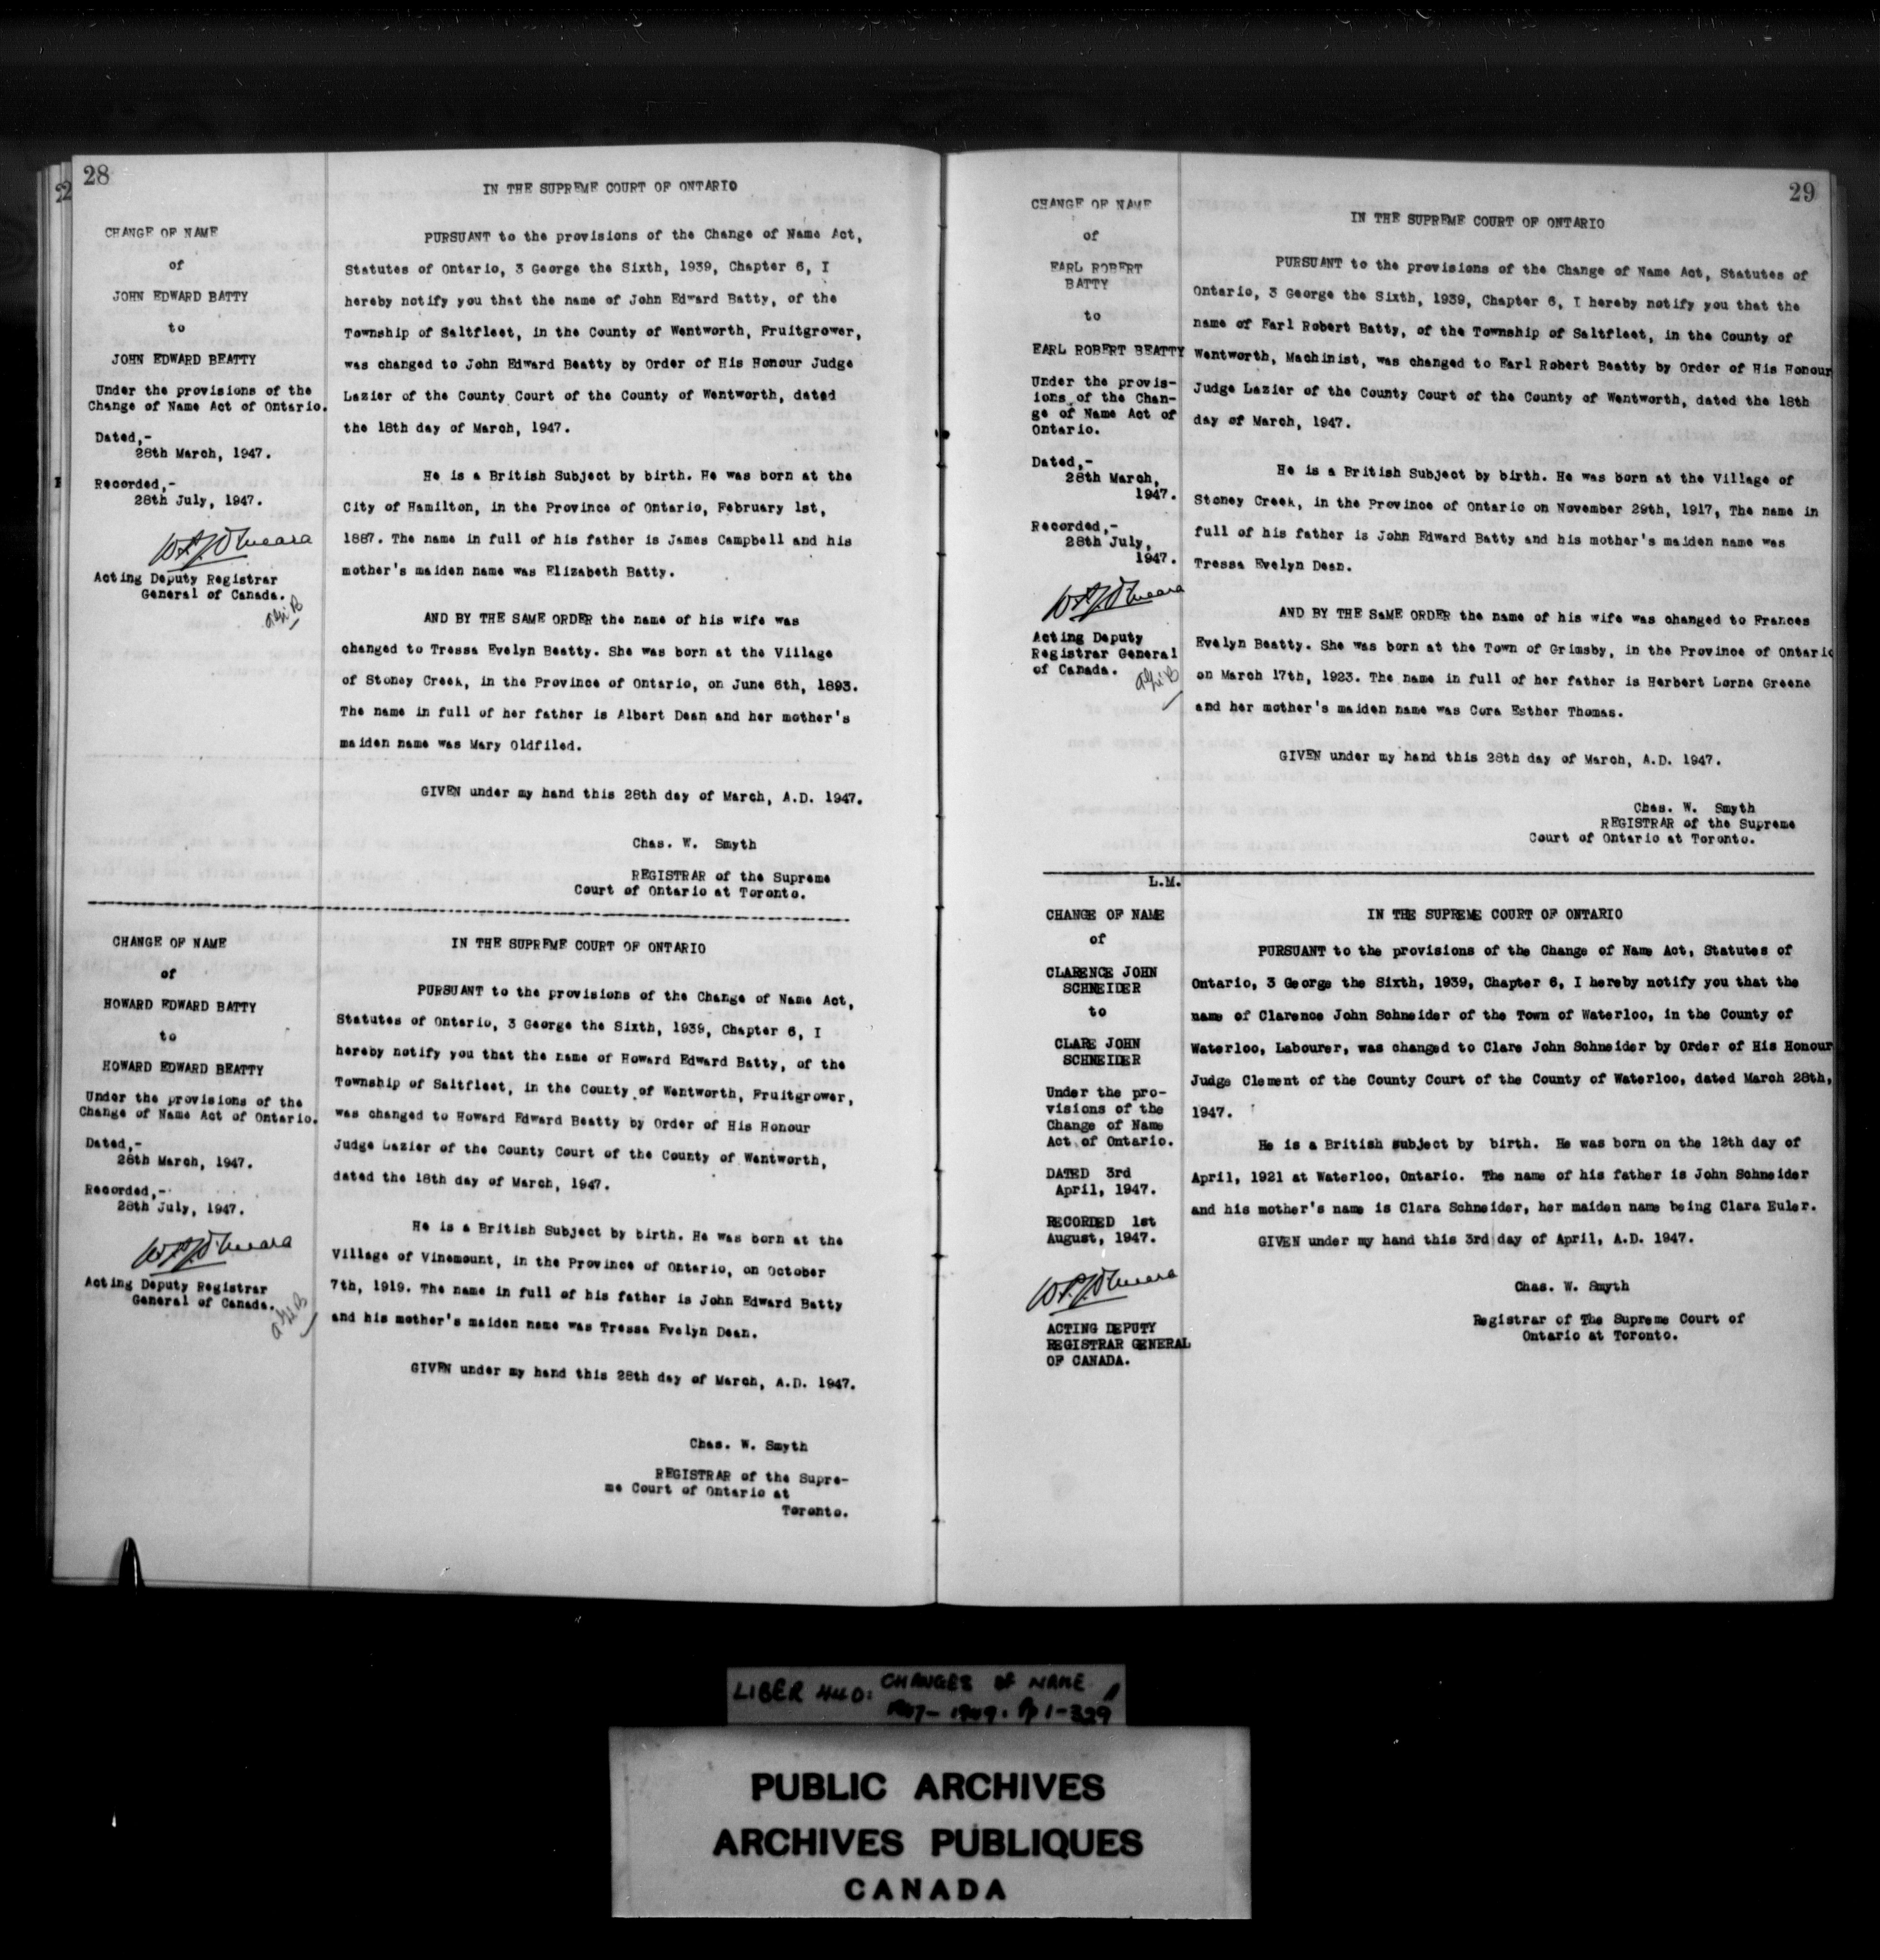 28
CHANGE OF NAME
of
JOHN EDWARD BATTY
to
JOHN EDWARD BEATTY
Under the provisions of the
Change of Name Act of Ontario.
Dated,-
28th March, 1947.
Recorded,-
28th July, 1947.
Acting Deputy Registrar
General of Canada.
IN THE SUPREME COURT OF ONTARIO
PURSUANT to the provisions of the Change of Name Act,
Statutes of Ontario, 3 George the Sixth, 1939, Chapter 6, I
hereby notify you that the name of John Edward Batty, of the
Township of Saltfleet, in the County of Wentworth, Fruitgrower,
was changed to John Edward Beatty by Order of His Honour Judge
Lazier of the County Court of the County of Wentworth, dated
the 18th day of March, 1947.
He is a British Subject by birth. He was born at the
City of Hamilton, in the Province of Ontario, February 1st,
1887. The name in full of his father is James Campbell and his
mother's maiden name was Elizabeth Batty.
AND BY THE SAME ORDER the name of his wife was
changed to Tressa Evelyn Beatty. She was born at the Village
of Stoney Creek, in the Province of Ontario, on June 6th, 1893.
The name in full of her father is Albert Dean and her mother's
maiden name was Mary Oldfiled.
GIVEN under my hand this 28th day of March, A.D. 1947.
Chas. W. Smyth
REGISTRAR of the Supreme
Court of Ontario at Toronto.
CHANGE OF NAME
of
HOWARD EDWARD BATTY
to
HOWARD EDWARD BEATTY
Under the provisions of the
Change of Name Act of Ontario.
Dated,-
28th March, 1947.
Recorded,-
28th July, 1947.
Acting Deputy Registrar
General of Canada.
IN THE SUPREME COURT OF ONTARIO
PURSUANT to the provisions of the Change of Name Act,
Statutes of Ontario, 3 George the Sixth, 1939, Chapter 6, I
hereby notify you that the name of Howard Edward Batty, of the
Township of Saltfleet, in the County of Wentworth, Fruitgrower,
was changed to Howard Edward Beatty by Order of His Honour
Judge Lazier of the County Court of the County of Wentworth,
dated the 18th day of March, 1947.
He is a British Subject by birth. He was born at the
Village of Vinemount, in the Province of Ontario, on October
7th, 1919. The name in full of his father is John Edward Batty
and his mother's maiden name was Tressa Evelyn Dean.
GIVEN under my hand this 28th day of March, A.D. 1947.
Chas. W. Smyth
REGISTRAR of the Supre-
me Court of Ontario at
Toronto.
29
CHANGE OF NAME
of
EARL ROBERT
BATTY
to
EARL ROBERT BEATTY
Under the provis-
ions of the Chan-
ge of Name Act of
Ontario.
Dated,-
28th March,
1947.
Recorded,-
28th July,
1947.
Acting Deputy
Registrar General
of Canada.
IN THE SUPREME COURT OF ONTARIO
PURSUANT to the provisions of the Change of Name Act, Statutes of
Ontario, 3 George the Sixth, 1939, Chapter 6, I hereby notify you that the
name of Earl Robert Batty, of the Township of Saltfleet, in the County of
Wentworth, Machinist, was changed to Earl Robert Beatty by Order of His Honour
Judge Lazier of the County Court of the County of Wentworth, dated the 18th
day of March, 1947.
He is a British Subject by birth. He was born at the Village of
Stoney Creek, in the Province of Ontario on November 29th, 1917, The name in
full of his father is John Edward Batty and his mother's maiden name was
Tressa Evelyn Dean.
AND BY THE SaME ORDER the name of his wife was changed to Frances
Evelyn Beatty. She was born at the Town of Grimsby, in the Province of Ontario
on March 17th, 1923. The name in full of her father is Herbert Lorne Greene
and her mother's maiden name was Cora Esther Thomas.
GIVEN under my hand this 28th day of March, A.D. 1947.
Chas. W. Smyth
REGISTRAR of the Supreme
Court of Ontario at Toronto.
L.M.
CHANGE OF NAME
of
CLARENCE JOHN
SCHNEIDER
to
CLARE JOHN
SCHNEIDER
Under the pro-
visions of the
Change of Name
Act of Ontario.
DATED 3rd
April, 1947.
RECORDED 1st
August, 1947.
ACTING DEPUTY
REGISTRAR GENERAL
OF CANADA.
IN THE SUPREME COURT OF ONTARIO
PURSUANT to the provisions of the Change of Name Act, Statutes of
Ontario, 3 George the Sixth, 1939, Chapter 6, I hereby notify you that the
name of Clarence John Schneider of the Town of Waterloo, in the County of
Waterloo, Labourer, was changed to Clare John Schneider by Order of His Honour
Judge Clement of the County Court of the County of Waterloo, dated March 28th,
1947.
He is a British subject by birth. He was born on the 12th day of
April, 1921 at Waterloo, Ontario. The name of his father is John Schneider
and his mother's name is Clara Schneider, her maiden name being Clara Euler.
GIVEN under my hand this 3rd day of April, A.D. 1947.
Chas. W. Smyth
Registrar of The Supreme Court of
Ontario at Toronto.
LIBER 440: CHANGES OF NAME
1947-1949. Pp 1-329
PUBLIC ARCHIVES
ARCHIVES PUBLIQUES
CANADA